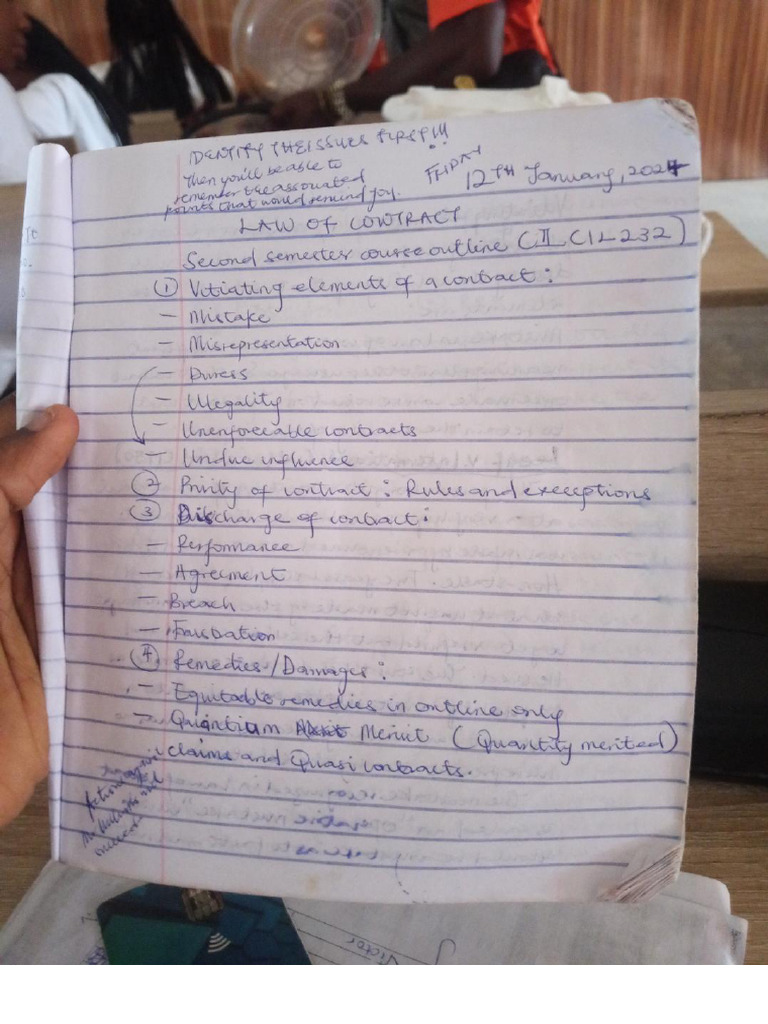 IDENTIFY THE ISSUES FIRST!!!
Then you'll be able to
remember the associated
points that would remind you.
FRIDAY
12TH January, 2024
LAW OF CONTRACT
Second semester course outline (CIL CIL 232)
① Vitiating elements of a contract:
- Mistake
- Misrepresentation
- Duress
- Illegality
- Unenforceable contracts
- Undue influence
② Privity of contract: Rules and exceptions
③ Discharge of contract:
- Performance
- Agreement
- Breach
- Frustration
④ Remedies/Damages:
- Equitable remedies in outline only
- Quantium Meriut (Quantity merited)
claims and Quasi contracts.
Victor